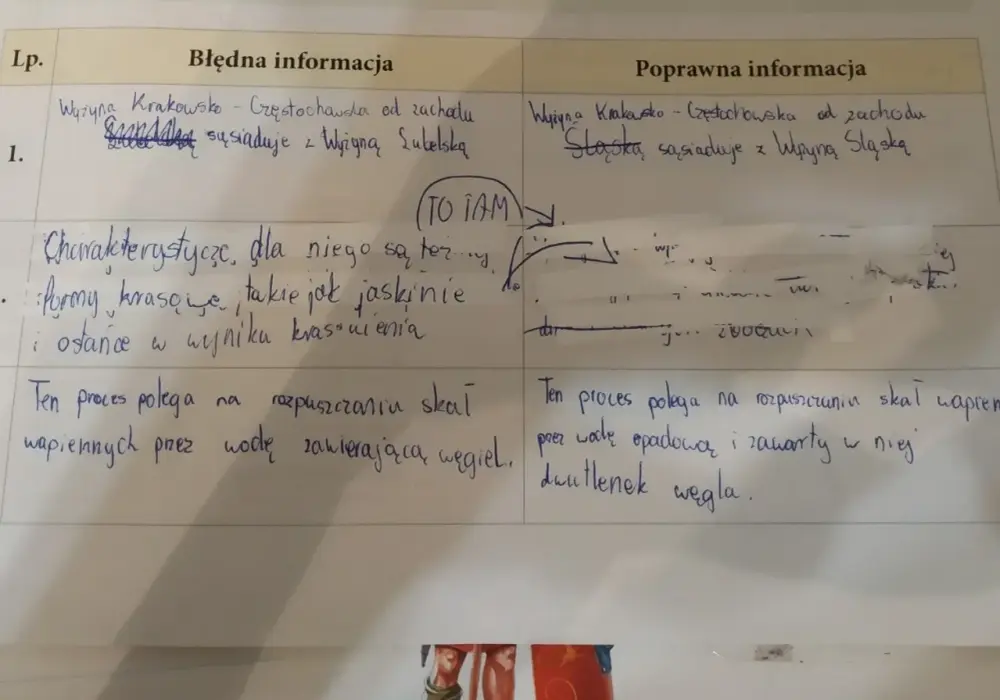 Lp.
Błędna informacja
Poprawna informacja
1.
Wyżyna Krakowsko - Częstochowska od zachodu
sąsiaduje z Wyżyną Lubelską
Wyżyna Krakowsko - Częstochowska od zachodu
Śląską sąsiaduje z Wyżyną Śląską
TO TAM
Charakterystyczę, dla niego są też
formy krasowe, takie jak jaskinie
i ostańce w wyniku
Ten proces polega na rozpuszczaniu skał
wapiennych przez wodę zawierającą węgiel.
Ten proces polega na rozpuszczaniu skał wapien
przez wodę opadową i zawarty w niej
dwutlenek węgla.